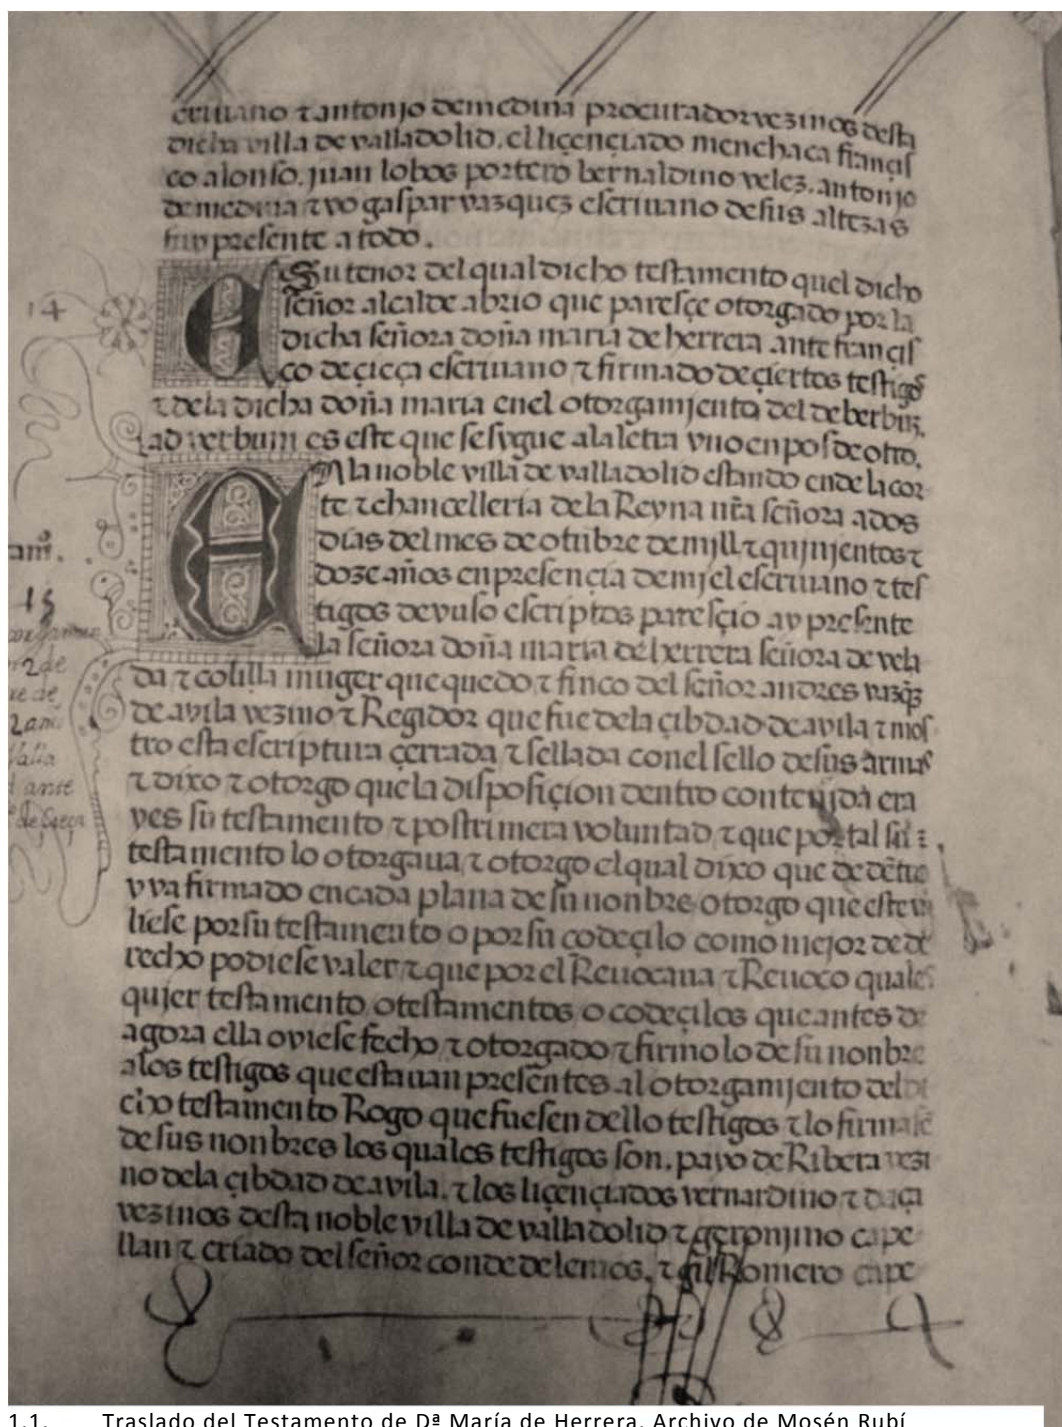 criuano τ antonjo de medina procurador vezinos desta
dicha villa de valladolid. el liçençiado menchaca françis
co alonso. juan lobos portero bernaldino velez. antonjo
de medina τ yo gaspar vazquez escriuano de sus altezas
fuy presente a todo.
Su tenor del qual dicho testamento quel dicho
14
señor alcalde abrio que paresçe otorgado por la
dicha señora doña maria de herrera ante françis
co de çieça escriuano τ firmado de çiertos testigos
τ dela dicha doña maria enel otorgamjento del de berbun.
ad verbum es este que se sygue ala letra vno en pos de otro.
la noble villa de valladolid estando ende la cor
te τ chancelleria dela Reyna nr̃a señora a dos
dias del mes de otubre de mill τ qujnjentos τ
doze años en presençia de mj el escriuano τ tes
15
tigos de yuso escriptos paresçio ay presente
la señora doña maria de herrera señora de vela
da τ colilla muger que quedo τ finco del señor andres vazq̃z
de avila vezino τ Regidor que fue dela çibdad de avila τ mos
tro esta escriptura çerrada τ sellada conel sello de sus armas
τ dixo τ otorgo que la disposiçion dentro contenjda era
yes su testamento τ postrimera voluntad τ que por tal su
testamento lo otorgaua τ otorgo el qual dixo que de dẽtro
y va firmado en cada plana de su nonbre otorgo que este va
liese por su testamento o por su codeçilo como mejor de de
recho podiese valer τ que por el Reuocaua τ Reuoco quales
qujer testamento o testamentos o codeçilos que antes de
agora ella oviese fecho τ otorgado τ firmolo de su nonbre
a los testigos que estauan presentes al otorgamjento del di
cho testamento Rogo que fuesen dello testigos τ lo firmasẽ
de sus nonbres los quales testigos son. payo de Ribera vezi
no dela çibdad de avila. τ los liçençiados vernardino τ daça
vezinos desta noble villa de valladolid τ geronjmo cape
llan τ criado del señor conde de lemos. τ gil Romero cape
1.1. Traslado del Testamento de Dª María de Herrera. Archivo de Mosén Rubí